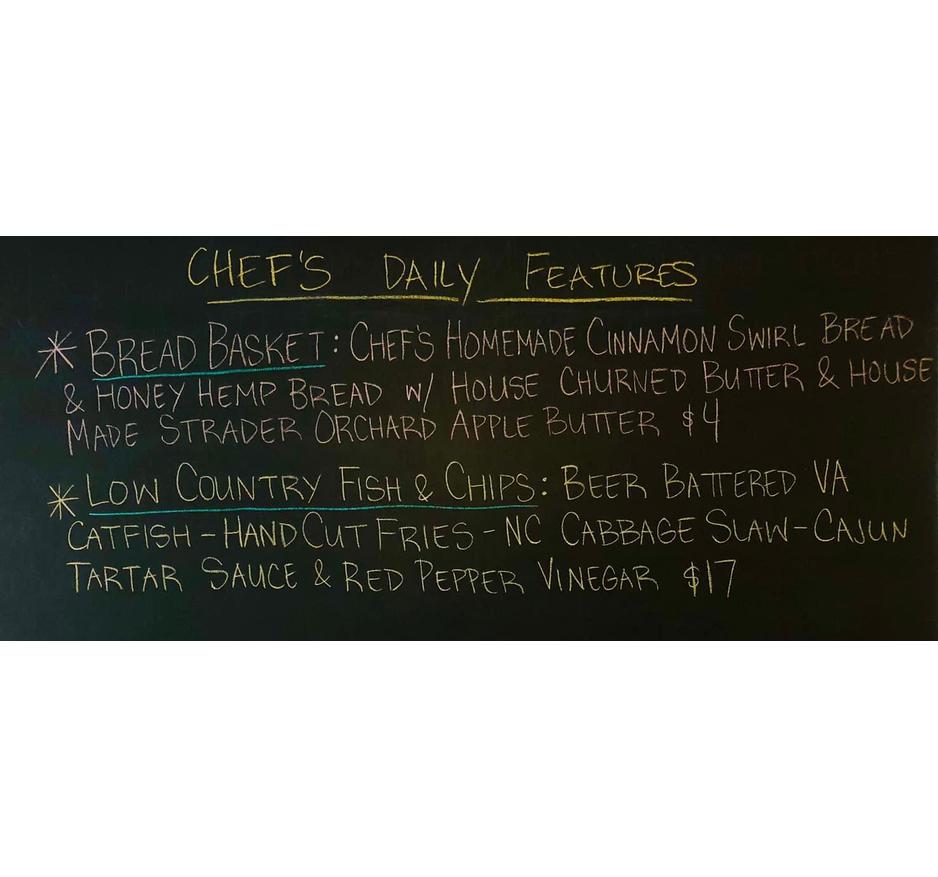 CHEF'S DAILY FEATURES
* BREAD BASKET: CHEF'S HOMEMADE CINNAMON SWIRL BREAD
& HONEY HEMP BREAD W/ HOUSE CHURNED BUTTER & HOUSE
MADE STRADER ORCHARD APPLE BUTTER $4
* LOW COUNTRY FISH & CHIPS: BEER BATTERED VA
CATFISH - HAND CUT FRIES - NC CABBAGE SLAW - CAJUN
TARTAR SAUCE & RED PEPPER VINEGAR $17